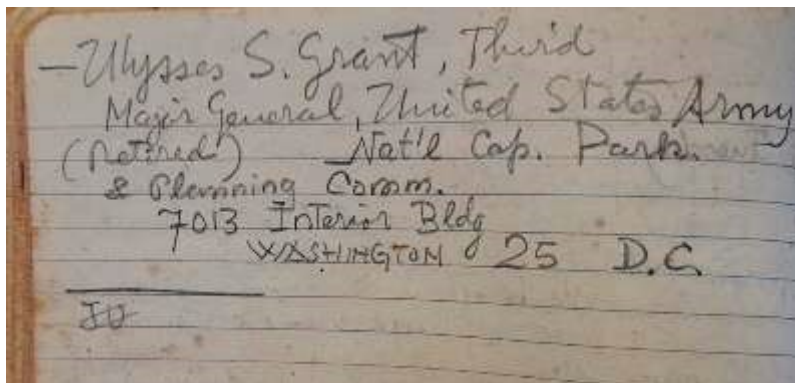 —Ulysses S. Grant, Third
Major General, United States Army
(Retired) Nat'l Cap. Park.
& Planning Comm.
7013 Interior Bldg
WASHINGTON 25 D.C.